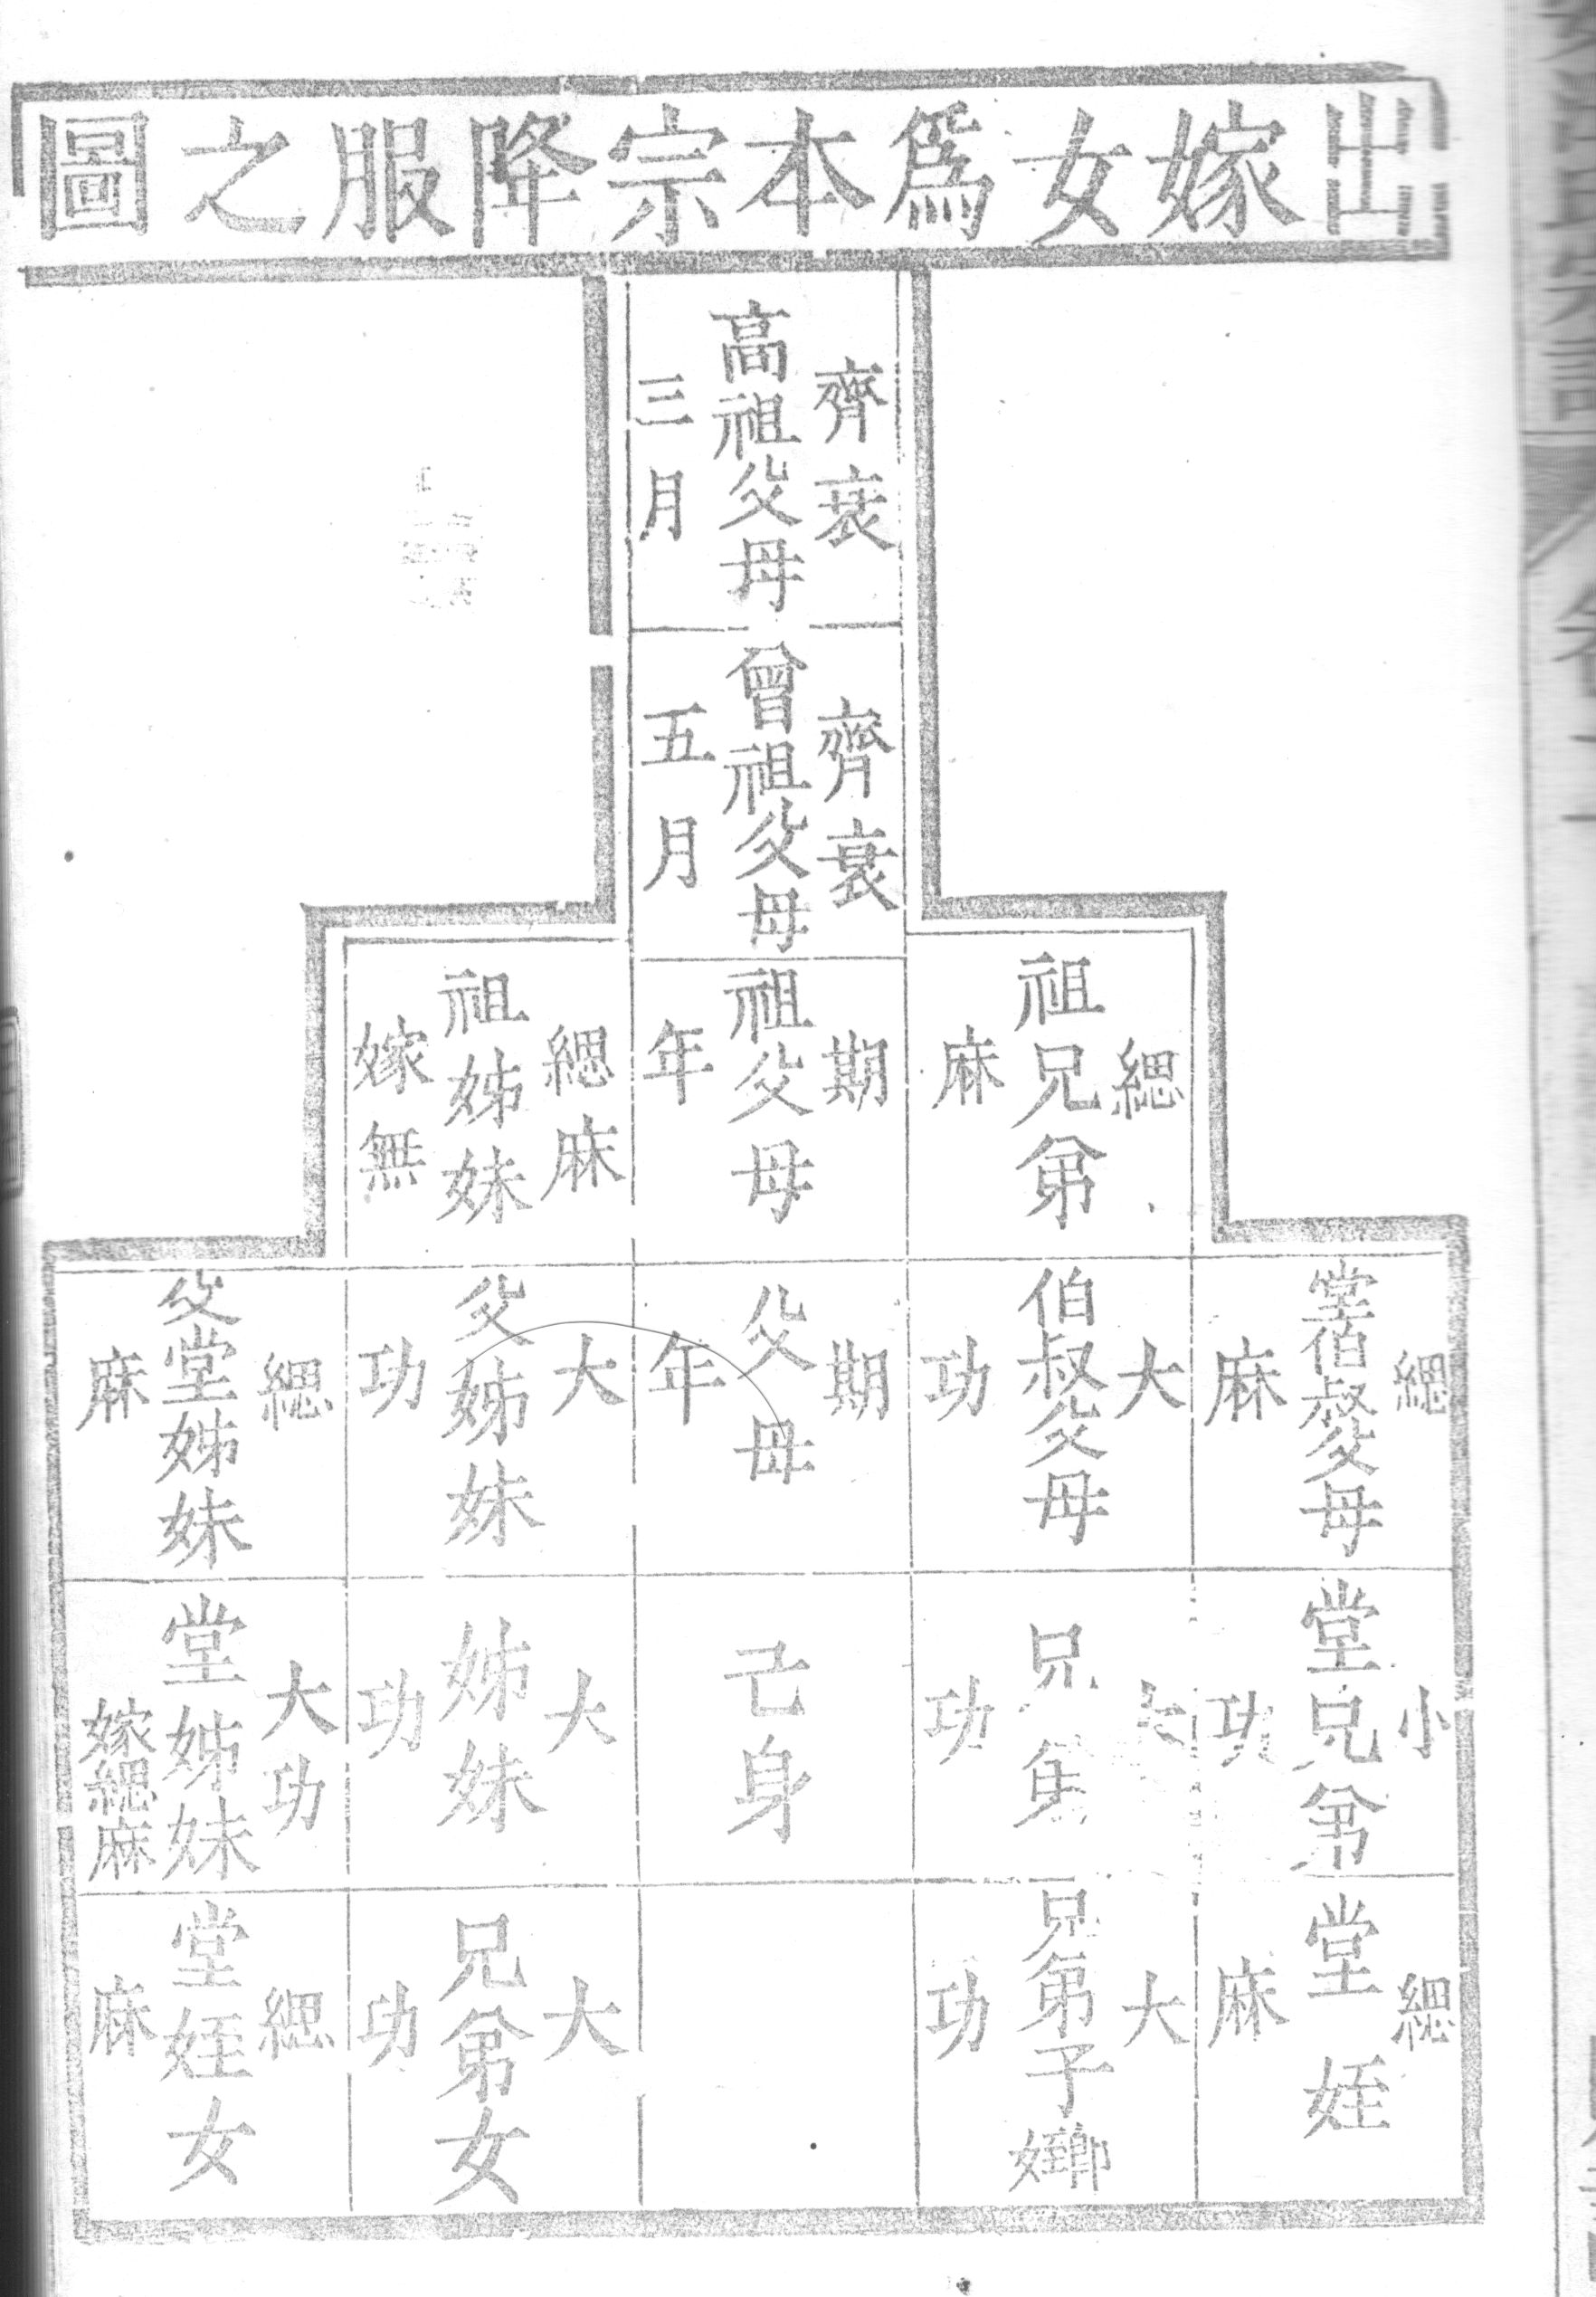 出嫁女爲本宗降服之圖
齊衰
高祖父母
三月
齊衰
曾祖父母
五月
緦
祖兄弟
麻
期
祖父母
年
緦麻
祖姊妹
嫁無
緦
堂伯叔父母
麻
大
伯叔父母
功
期
父母
年
大
父姊妹
功
緦
父堂姊妹
麻
小
堂兄弟
功
大
兄弟
功
己身
大
姊妹
功
大功
堂姊妹
嫁緦麻
緦
堂姪
麻
大
兄弟子
即姪
功
大
兄弟女
功
緦
堂姪女
麻